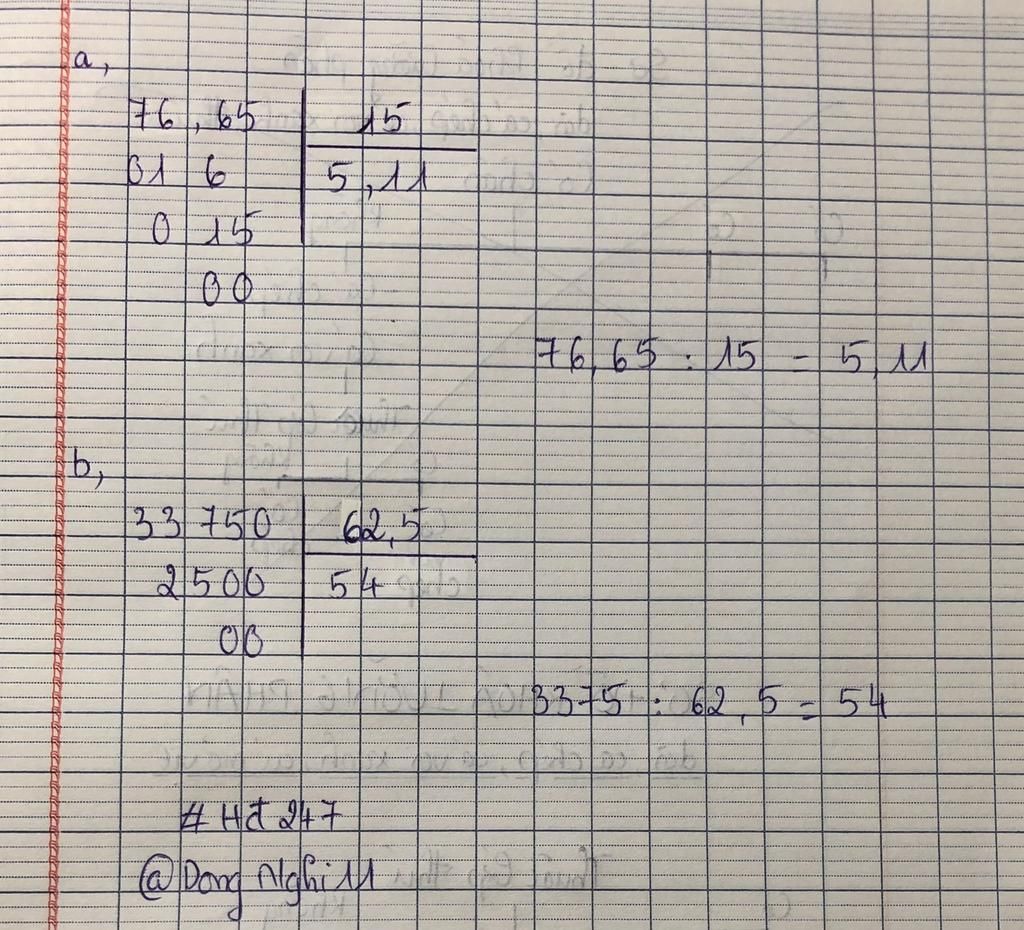 a,
76,65 15
01 6 5,11
0 15
00
76,65 : 15 = 5,11
b,
33750 62,5
2500 54
00
3375 : 62,5 = 54
# Hđ 247
@Dong Nghi 11